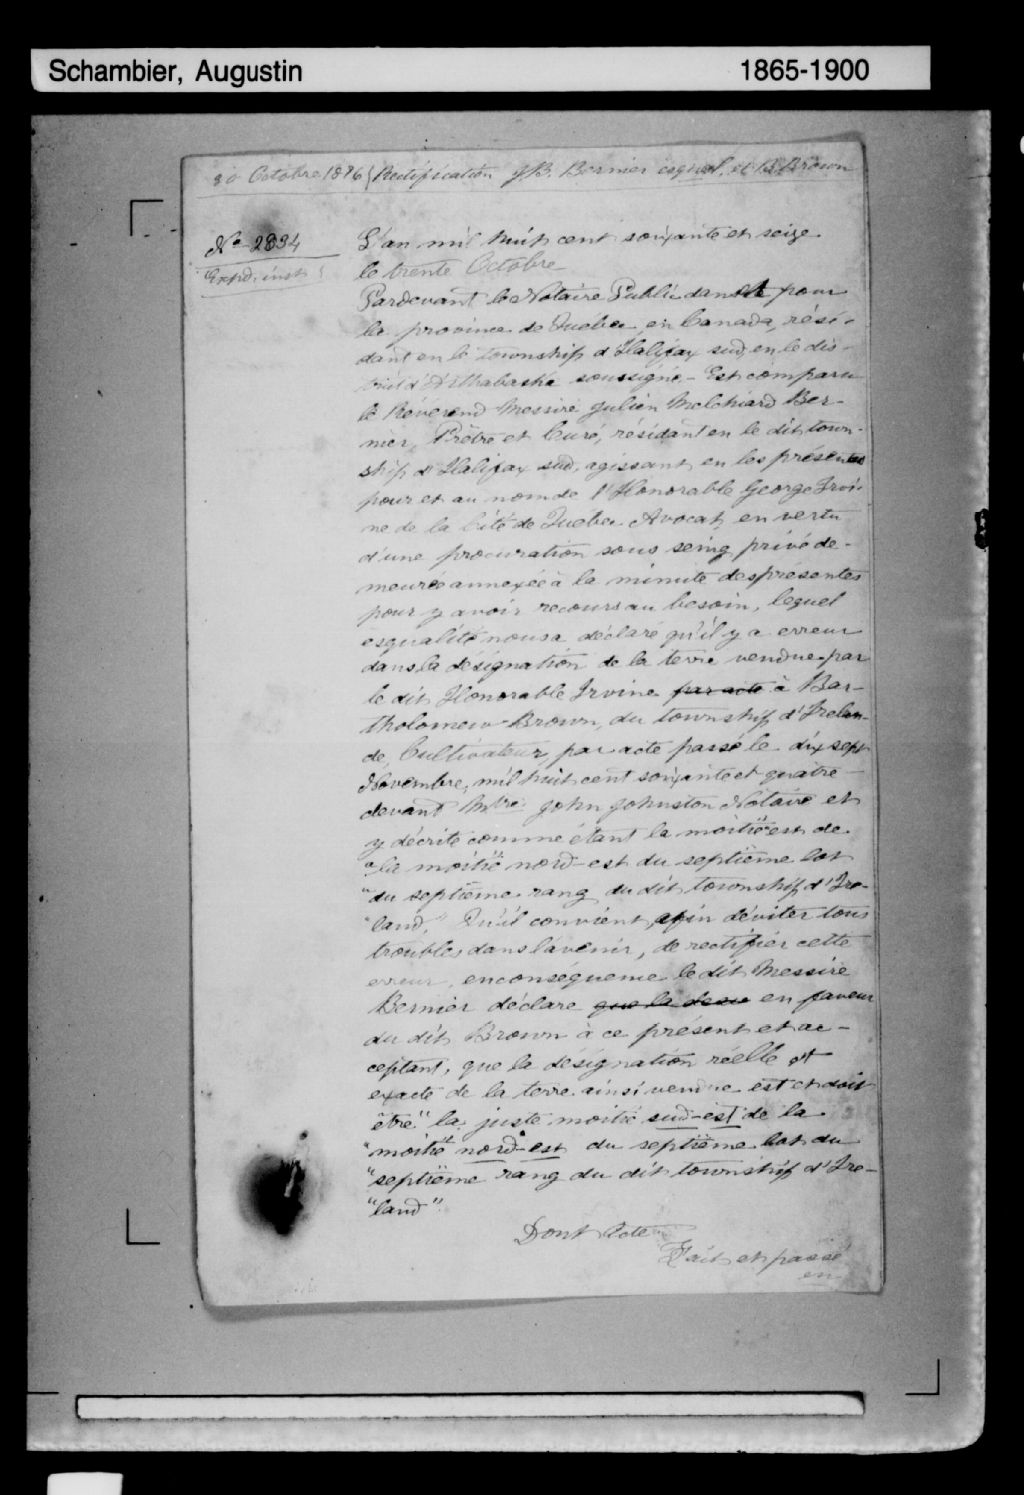 Schambier, Augustin 1865-1900
30 Octobre 1876 Rectification J.B. Bernier esqual. et B. Brown
No 2834
Expd. inst
L'an mil huit cent soixante et seize
le trente Octobre
Pardevant le Notaire Public dans et pour
la province de Québec, en Canada, rési-
dant en le township d'Halifax sud, en le dis-
trict d'Arthabaska soussigné. - Est comparu
le Révérend Messire Julien Melchiard Ber-
nier, Prêtre et Curé, résidant en le dit town-
ship d'Halifax sud, agissant en les présentes
pour et au nom de l'Honorable George Irvi-
ne de la Cité de Québec Avocat, en vertu
d'une procuration sous seing privé de-
meurée annexée à la minute des présentes
pour y avoir recours au besoin, lequel
èsqualité nous a déclaré qu'il y a erreur
dans la désignation de la terre vendue par
le dit Honorable Irvine par acte à Bar-
tholomew Brown, du township d'Irelan-
de, Cultivateur, par acte passé le dix sept
Novembre, mil huit cent soixante et quatre
devant Mtre John Johnston Notaire et
y décrite comme étant la moitié est de
"la moitié nord-est du septième lot
"du septième rang du dit township d'Ire-
"land," Qu'il convient, afin d'éviter tous
troubles dans l'avenir, de rectifier cette
erreur, en conséquence le dit Messire
Bernier déclare que la en faveur
du dit Brown à ce présent et ac-
ceptant, que la désignation réelle et
exacte de la terre ainsi vendue est et doit
être "la juste moitié sud-est de la
"moitié nord-est du septième lot du
"septième rang du dit township d'Ire-
"land".
Dont Acte
Fait et passé
en